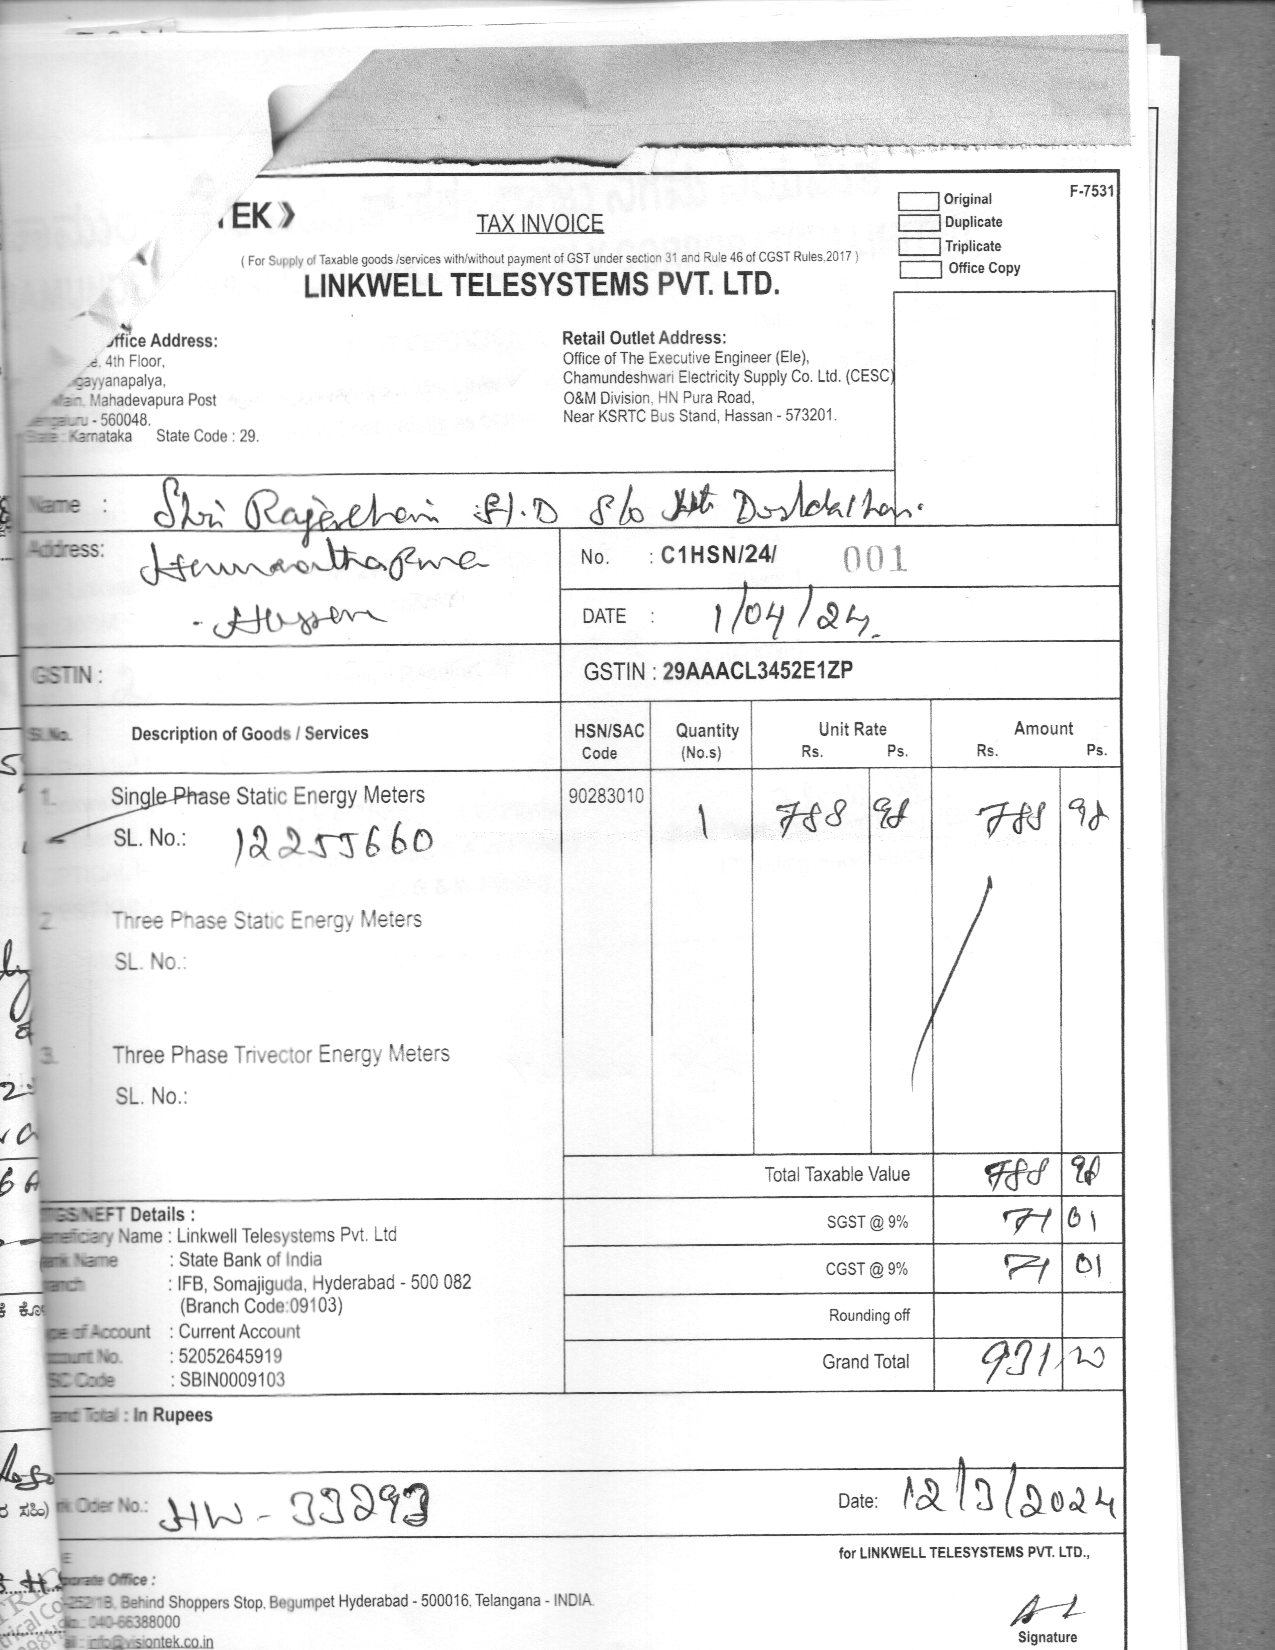 TEK
F-7531
TAX INVOICE
Original
Duplicate
Triplicate
Office Copy
( For Supply of Taxable goods /services with/without payment of GST under section 31 and Rule 46 of CGST Rules,2017 )
LINKWELL TELESYSTEMS PVT. LTD.
Office Address:
4th Floor,
Mahadevapura Post
- 560048.
State : Karnataka State Code : 29.
Retail Outlet Address:
Office of The Executive Engineer (Ele),
Chamundeshwari Electricity Supply Co. Ltd. (CESC)
O&M Division, HN Pura Road,
Near KSRTC Bus Stand, Hassan - 573201.
Name : Shri S/o
Address:
No. : C1HSN/24/ 001
DATE : 1/04/24
GSTIN :
GSTIN : 29AAACL3452E1ZP
Sl.No. Description of Goods / Services HSN/SAC Code Quantity (No.s) Unit Rate Rs. Ps. Amount Rs. Ps.
1. Single Phase Static Energy Meters 90283010 1 788 98 788 98
SL. No.: 12255660
2. Three Phase Static Energy Meters
SL. No.:
3. Three Phase Trivector Energy Meters
SL. No.:
Total Taxable Value 788 98
SGST @ 9% 71 01
CGST @ 9% 71 01
Rounding off
Grand Total 931
NEFT Details :
Name : Linkwell Telesystems Pvt. Ltd
Name : State Bank of India
: IFB, Somajiguda, Hyderabad - 500 082
(Branch Code:09103)
of Account : Current Account
No. : 52052645919
Code : SBIN0009103
Total : In Rupees
Oder No.: HW - 33293
Date: 12/3/2024
for LINKWELL TELESYSTEMS PVT. LTD.,
Office :
Behind Shoppers Stop, Begumpet Hyderabad - 500016, Telangana - INDIA.
040-66388000
info@visiontek.co.in
Signature